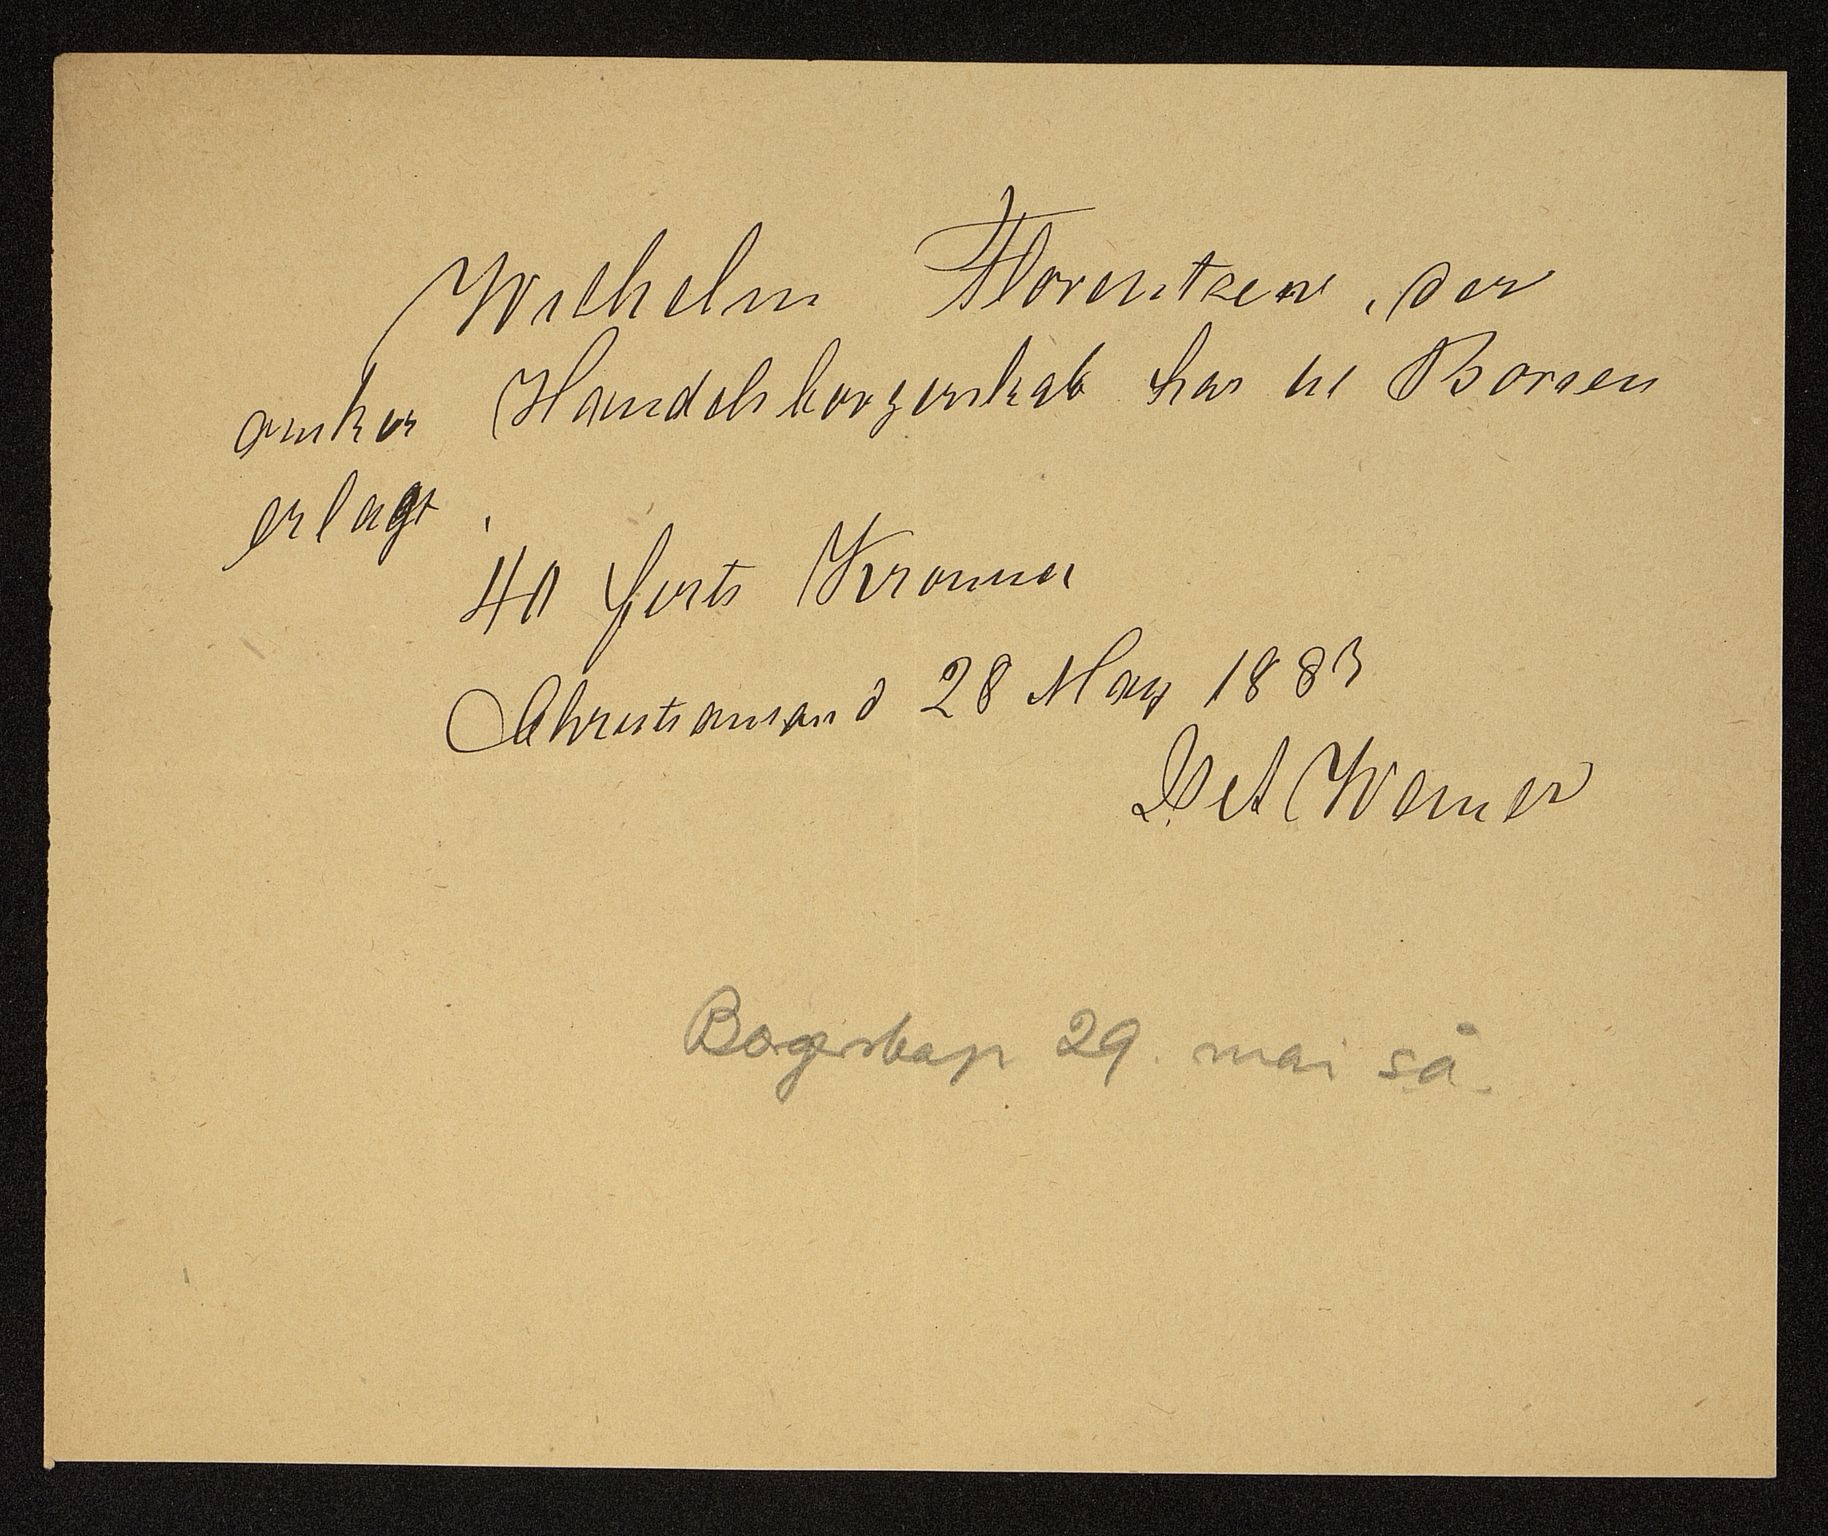 Wilhelm Florentsen, der
ønsker Handelsborgerskab har til Børsen
erlagt.
40 førti Kroner
Christiansand 28 May 1883
Pet Werner
Borgerskap 29. mai s å.